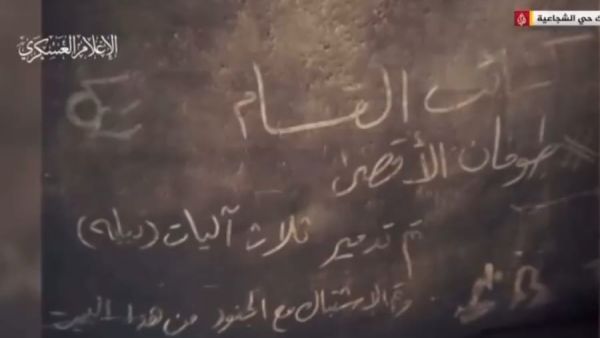 ك حي الشجاعية
الإعلام العسكري
كتائب القسام
طوفان الأقصى
تم تدمير ثلاث آليات (دبابة)
وتم الاشتباك مع الجنود من هذا البيت